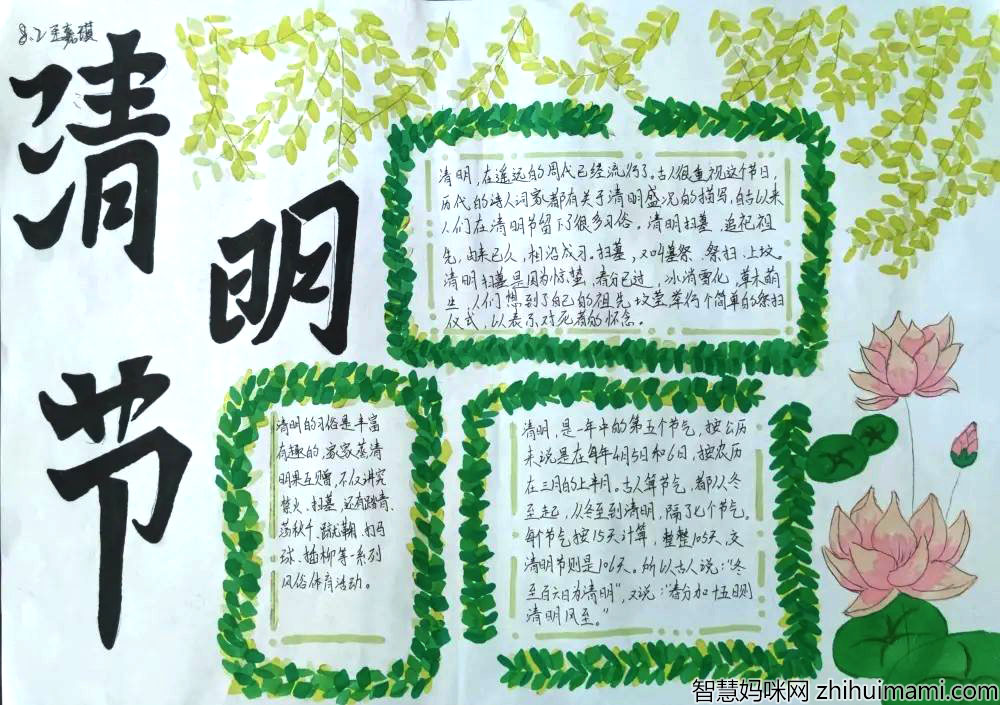 8.2 王嘉琪
清
明
节
清明,在遥远的周代已经流行了。古人很重视这个节日,
历代的诗人词家都有关于清明盛况的描写,自古以来
人们在清明节留下了很多习俗。清明扫墓,追祀祖
先,由来已久,相沿成习。扫墓,又叫墓祭、祭扫、上坟。
清明扫墓是因为惊蛰、春分已过,冰消雪化,草木萌
生,人们想到了自己的祖先坟茔,举行个简单的祭扫
仪式,以表示对死者的怀念。
清明的习俗是丰富
有趣的,家家蒸清
明果互赠,不仅讲究
禁火、扫墓,还有踏青、
荡秋千、蹴鞠、打马
球、插柳等一系列
风俗体育活动。
清明,是一年中的第五个节气,按公历
来说是在每年4月5日和6日,按农历
在三月的上半月。古人算节气,都从冬
至起,从冬至到清明,隔了七个节气。
每个节气按15天计算,整整105天,交
清明节则是106天。所以古人说:"冬
至百六日为清明",又说:"春分加十五日则
清明风至。"
智慧妈咪网 zhihuimami.com